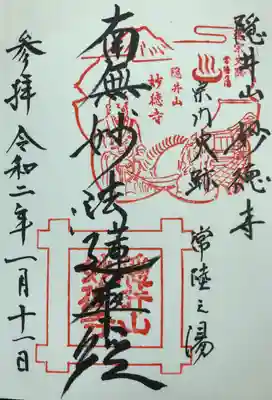 隠井山妙徳寺
常陸之湯
宗門史跡
南無妙法蓮華経
参拝 令和二年一月十一日
隠井山
妙徳寺